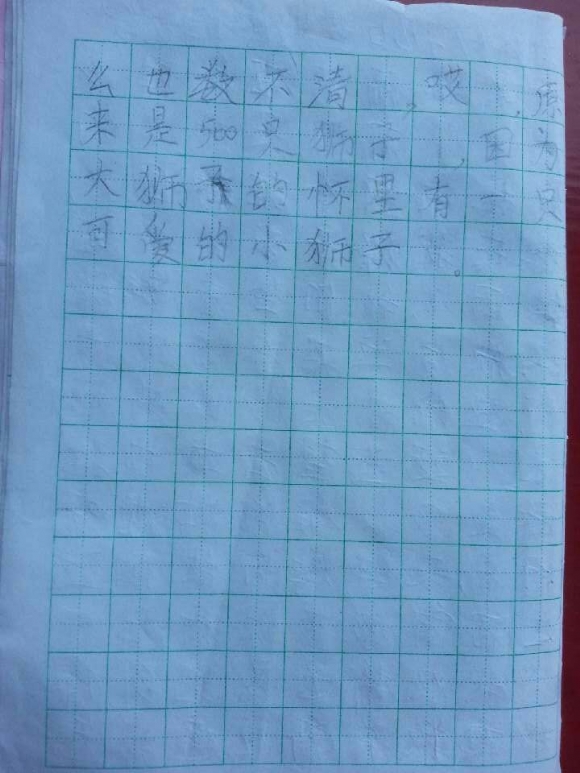 么也数不清，哎，原
来是500只狮子，因为
大狮子的怀里有一只
可爱的小狮子。